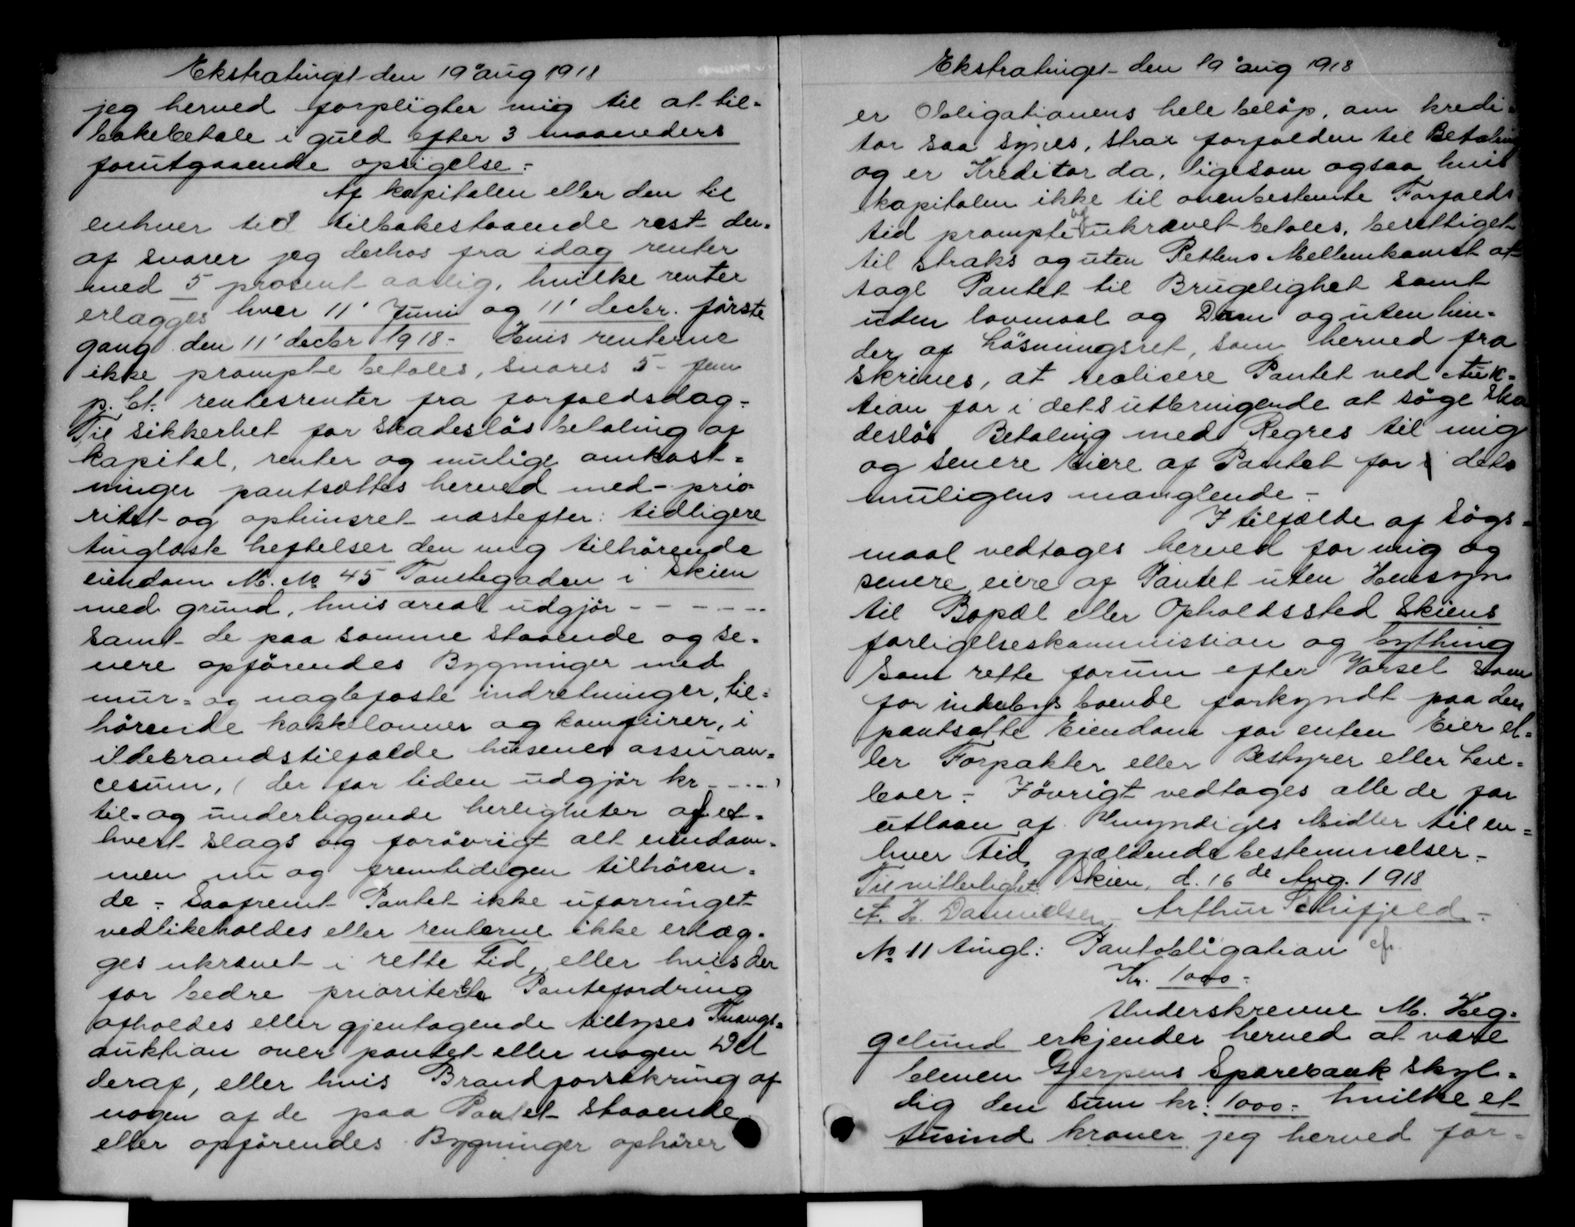 Ekstratinget den 19 aug 1918
jeg herved forpligter mig til at til-
bakebetale i guld efter 3 maaneders
forutgaaende opsigelse.-
Af kapitalen eller den til
enhver tid tilbakestaaende rest der-
af svarer jeg derhos fra idag renter
med 5 prosent aarlig, hvilke renter
erlægges hver 11' Juni og 11' decbr. første
gang den 11' decbr 1918.- Hvis renterne
ikke prompte betales, svares 5 - fem
p. ct. rentesrenter fra forfaldsdag.-
Til sikkerhet for skadesløs betaling af
kapital, renter og mulige omkost-
ninger pantsættes herved med prio
ritet og opkinsret næstefter: tidligere
tinglæste heftelser den mig tilhørende
eiendom M. No 45 Tanstegaden i Skien
med grund, hvis areal udgjør - - - - - -
samt de paa samme staaende og se-
nere opførendes Bygninger med
mur- og naglefaste indretninger, til-
hørende kakkelovner og komfürer, i
ildebrandstilfælde husenes assuran-
cesum, (der for tiden udgjør kr - - - - )
til- og underliggende herligheter af et-
hvert slags og forøvrigt alt eiendom-
men nu og fremtidigen tilhøren-
de.- Saafremt Pantet ikke uforringet
vedlikeholdes eller renterne ikke erlæg-
ges ukrævet i rette Tid, eller hvis der
for bedre prioriterte Pantefordring
afholdes eller gjentagende tillyses Tvangs-
auktion over pantet eller nogen Del
deraf, eller hvis Brandforsikring af
nogen af de paa Pantet staaende
eller opførendes Bygninger ophører
Ekstratinget den 19 aug 1918
er Obligationens hele beløp, om kredi-
tor saa synes, strax forfalden til Betaling
og er Kreditor da, ligesom ogsaa hvis
kapitalen ikke til ovenbestemte Forfalds
tid prompte og ukrævet betales, berettiget
til straks og uten Rettens Mellemkomst at
tage Pantet til Brugelighet samt
uden lovmaal og Dom og uten hin-
der af Løsningsret, som herved fra
skrives, at realisere Pantet ved Auk-
tion for i dets utbringende at søge Ska
desløs Betaling med Regres til mig
og senere Eiere af Pantet for i dets
muligens manglende.-
I tilfælde af Søgs-
maal vedtages herved for mig og
senere eiere af Pantet uten Hensyn
til Bopæl eller Opholdssted Skiens
forligelseskommission og bything
som rette forum efter Varsel som
for indenbys boende forkyndt paa den
pantsatte Eiendom for enten Eier el-
ler Forpakter eller Bestyrer eller Lei-
boer.- Iøvrigt vedtages alle de for
utlaan af Umyndiges Midler til en-
hver Tid gjældende bestemmelser.-
Til vitterlighet. Skien, d. 16 de Aug. 1918
A. H. Danielsen Arthur Schifjeld.-
No 11 tingl: Pantobligation
Kr. 1000.-
Underskrevne M. Heg-
gelund erkjender herved at være
bleven Gjerpens Sparebank skyl-
dig den sum kr: 1000.- hvilke et
tusind kroner jeg herved for-